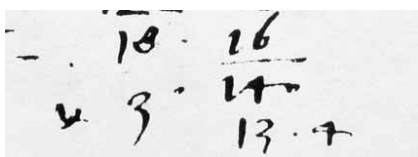 - . 18 . 16
14
3 .
13 . 4